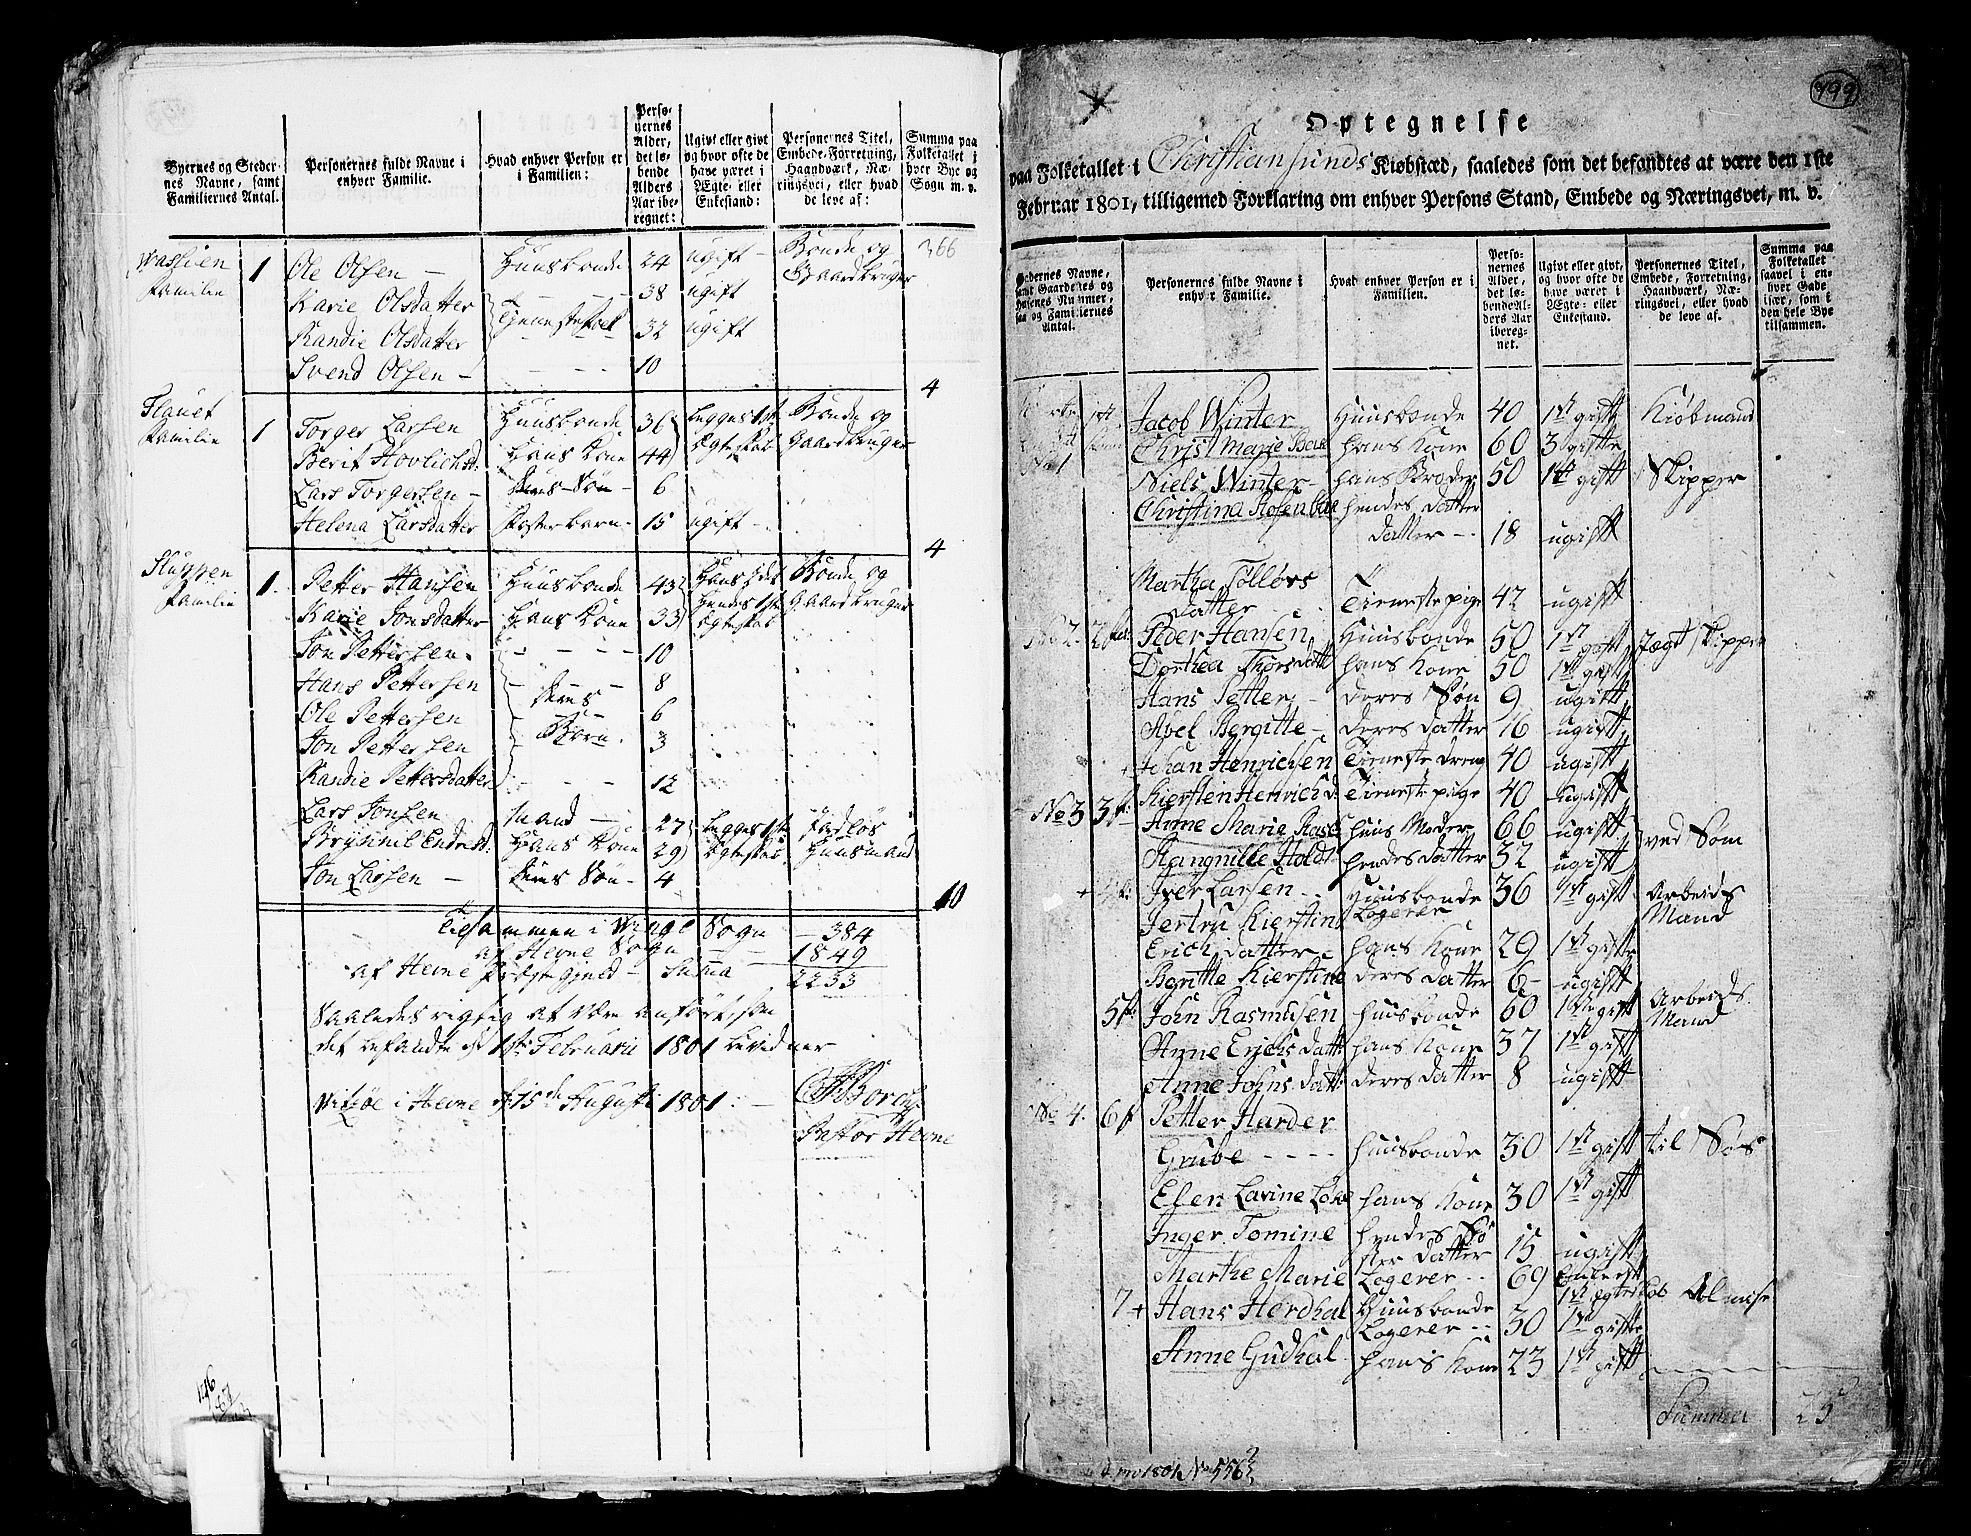 Byernes og Steder-
nes Navne, samt
Familiernes Antal.
Personernes fulde Navne i
enhver Familie.
Hvad enhver Person er
i Familien:
Perso-
nernes
Alder,
det lø-
bende
Alders
Aar ibe-
regnet:
Ugivt eller givt
og hvor ofte de
have været i
Ægte- eller
Enkestand:
Personernes Titel,
Embede, Forretning,
Haandværk, Næ-
ringsvei, eller hvad
de leve af:
Summa paa
Folketallet i
hver Bye og
Sogn m. v.
Familie 1 Ole Olsen — Huusbonde 24 ugift — Bonde og Gaardbruger 366
Karie Olsdatter 38 ugift
Randie Olsdatter Tjenestefolk 32 ugift
Svend Olsen — 10
4
Familie 1 Torger Larsen Huusbonde 36 begges 1ste Bonde og
Berit Hans Kone 44 Ægteskab Gaardbruger
Lars Torgersen — Deres Søn — 6
Helena Larsdatter Fosterbarn — 15 ugift
4
Familie 1. Petter Hansen Huusbonde 43 Hans 2det Bonde og
Karie Jonsdatter Hans Kone 33 Hendes 1ste Gaardbruger
Ægteskab
Jon Pettersen 10
Hans Pettersen 8
Deres
Ole Pettersen 6
Børn.
Jon Pettersen 3
Randie Pettersdatter 12
Lars Jonsen Mand — 27 begges 1ste
Brynnil Endresd. Hans Kone 29 Ægteskab Huusmand
Jon Larsen — Deres Søn 4
10
Tilsammen i Vinge Sogn — 384
af Hevne Sogn — 1849
af Hevne Præstegjeld — Summa 2233
Saaledes rigtig at være anført, som
det befandtes d 1ste Februarii 1801 bevidner
i Hevne d 15de Augusti 1801. — Borch
Pastor Hevne
799
Optegnelse
paa Folketallet i Christiansunds Kiøbstæd, saaledes som det befandtes at være den 1ste
Februar 1801, tilligemed Forklaring om enhver Persons Stand, Embede og Næringsvei, m. v.
Gadernes Navne,
samt Gaardenes og
Husenes Nummer,
saa og Familiernes
Antal.
Personernes fulde Navne i
enhver Familie.
Hvad enhver Person er i
Familien.
Perso-
nernes
Alder,
det lø-
bende Al-
ders Aar
iberegnet.
Ugivt eller givt,
og hvor ofte de
have været i
Ægte- eller
Enkestand.
Personernes Titel,
Embede, Forretning,
Haandværk, Næ-
ringsvei, eller hvad
de leve af.
Summa paa
Folketallet
saavel i en-
hver Gade
især, som i
den hele Bye
tilsammen.
Jacob Winter Huusbonde 40 1ste gift Kiøbmand
No 1 Christ Marie hans Kone 60 3 gifte
Niels Winter — hans Broder 50 1ste gift Skipper
Christina hendes datter
datter — 18 ugift
Martha Tølløvs
datter Tieneste pige 42 ugift
No 2. 2 Peder Hansen Huusbonde 50 1st gift Jægt Skipper
Dorthea Thorsdatt hans Kone 50 1st gift
Hans Petter — deres Søn 9 ugift
Apel Bergitte — deres datter 16 ugift
Johan Henrichsen Tieneste dreng 40 ugift
Kiersten Henrich d. Tieneste pige 40 ugift
No 3 3 Anne Marie huus Moder 66 ugift
Rangnille Holdt hendes datter 32 ugift ved Søm
Iver Larsen — Huusbonde 36 1st gift Arbeids
Logerer Mand
Jertru Kierstine
Erich datter — hans Kone 29 1st gifte
Bergitte Kierstine deres datter 6 — ugift
5 John Rasmusen huusbonde 60 1ste gift Arbeids
Mand
Anne Erichs datt hans Kone 37 1st gift
Anne Johns datt deres datter 8 ugift
No 4. 6 Petter Harder
Grube — huusbonde 30 1st gift til Søs
Elen Lavine hans Kone 30 1st gift
Inger Tomine hendes Sø
ster datter 15 ugift
Marthe Marie Logerer — 69
1st Ægteskab Almise
7 + Hans Herdhal Huusbonde
Logerer — 30 1st gifte
Anne Gudhal. hans Kone 23 1st gift
Summa 25
1801 No 556